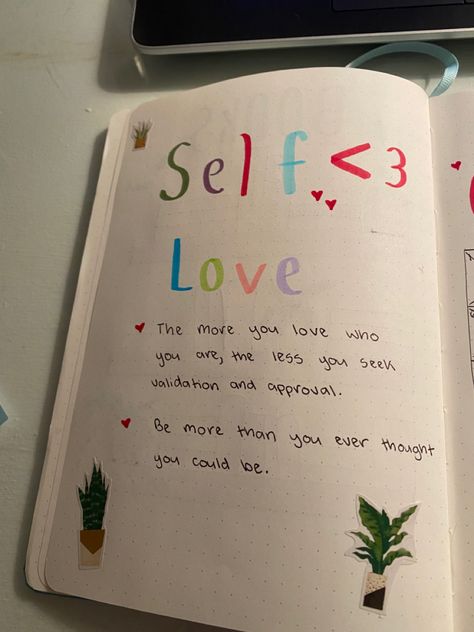 Self <3
Love
The more you love who
you are, the less you seek
validation and approval.
Be more than you ever thought
you could be.